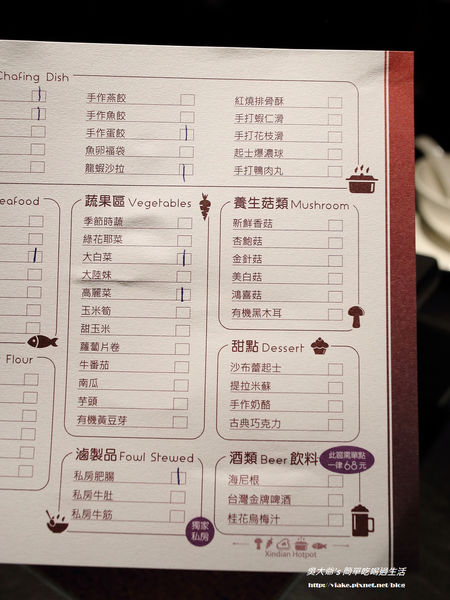 Chafing Dish
手作燕餃
手作魚餃
手作蛋餃
魚卵福袋
龍蝦沙拉
紅燒排骨酥
手打蝦仁滑
手打花枝滑
起士爆濃球
手打鴨肉丸
eafood
Flour
蔬果區 Vegetables
季節時蔬
綠花耶菜
大白菜
大陸妹
高麗菜
玉米筍
甜玉米
蘿蔔片卷
牛番茄
南瓜
芋頭
有機黃豆芽
養生菇類 Mushroom
新鮮香菇
杏鮑菇
金針菇
美白菇
鴻喜菇
有機黑木耳
甜點 Dessert
沙布蕾起士
提拉米蘇
手作奶酪
古典巧克力
滷製品 Fowl Stewed
私房肥腸
私房牛肚
私房牛筋
獨家
私房
酒類 Beer 飲料
此區需單點
一律68元
海尼根
台灣金牌啤酒
桂花烏梅汁
Xindian Hotpot
吳大爺's 簡單吃喝過生活
http://viake.pixnet.net/blog